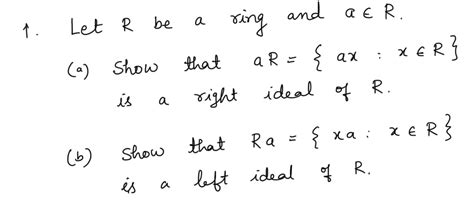 1. Let R be a ring and a ∈ R.
(a) Show that aR = { ax : x ∈ R }
is a right ideal of R.
(b) Show that Ra = { xa : x ∈ R }
is a left ideal of R.